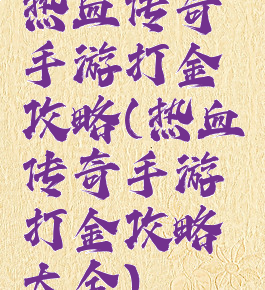 热血传奇
手游打金
攻略(热血
传奇手游
打金攻略
大全)